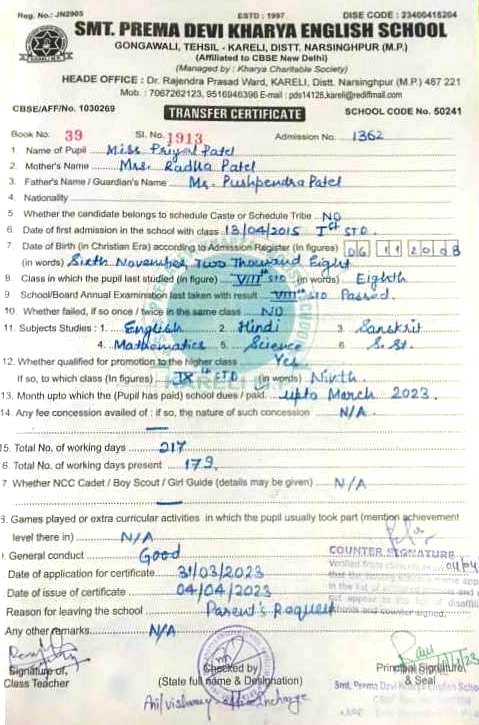 Reg. No.: JN2905 ESTD : 1997 DISE CODE : 23400415204
SMT. PREMA DEVI KHARYA ENGLISH SCHOOL
GONGAWALI, TEHSIL - KARELI, DISTT. NARSINGHPUR (M.P.)
(Affiliated to CBSE New Delhi)
(Managed by : Kharya Charitable Society)
HEADE OFFICE : Dr. Rajendra Prasad Ward, KARELI, Distt. Narsinghpur (M.P.) 487 221
Mob. : 7067262123, 9516946396 E-mail : pds14128.kareli@rediffmail.com
CBSE/AFF/No. 1030269 SCHOOL CODE No. 50241
TRANSFER CERTIFICATE
Book No. 39 Sl. No. 1913 Admission No. 1362
1. Name of Pupil Miss Priyal Patel
2. Mother's Name Mrs. Radha Patel
3. Father's Name / Guardian's Name Mr. Pushpendra Patel
4. Nationality
5. Whether the candidate belongs to schedule Caste or Schedule Tribe NO
6. Date of first admission in the school with class 13/04/2015 Ist STD.
7. Date of Birth (in Christian Era) according to Admission Register (In figures) 06 11 2008
(in words) Sixth November Two Thousand Eight
8. Class in which the pupil last studied (in figure) VIIIth STD (in words) Eighth
9. School/Board Annual Examination last taken with result VIIIth STD Passed.
10. Whether failed, if so once / twice in the same class NO
11. Subjects Studies : 1. English 2. Hindi 3. Sanskrit
4. Mathematics 5. Science 6. S. St.
12. Whether qualified for promotion to the higher class Yes
If so, to which class (In figures) IXth STD (in words) Ninth.
13. Month upto which the (Pupil has paid) school dues / paid upto March 2023.
14. Any fee concession availed of : if so, the nature of such concession N/A.
15. Total No. of working days 217
6. Total No. of working days present 179.
7 Whether NCC Cadet / Boy Scout / Girl Guide (details may be given) N/A
8. Games played or extra curricular activities in which the pupil usually took part (mention achievement
level there in) N/A
. General conduct Good
COUNTER SIGNATURE
. Date of application for certificate 31/03/2023
. Date of issue of certificate 04/04/2023
Reason for leaving the school Parent's Request
Any other remarks N/A
Signature of, Class Teacher
Checked by
(State full name & Designation)
Principal Signature & Seal
Smt. Prema Devi Kharya English School